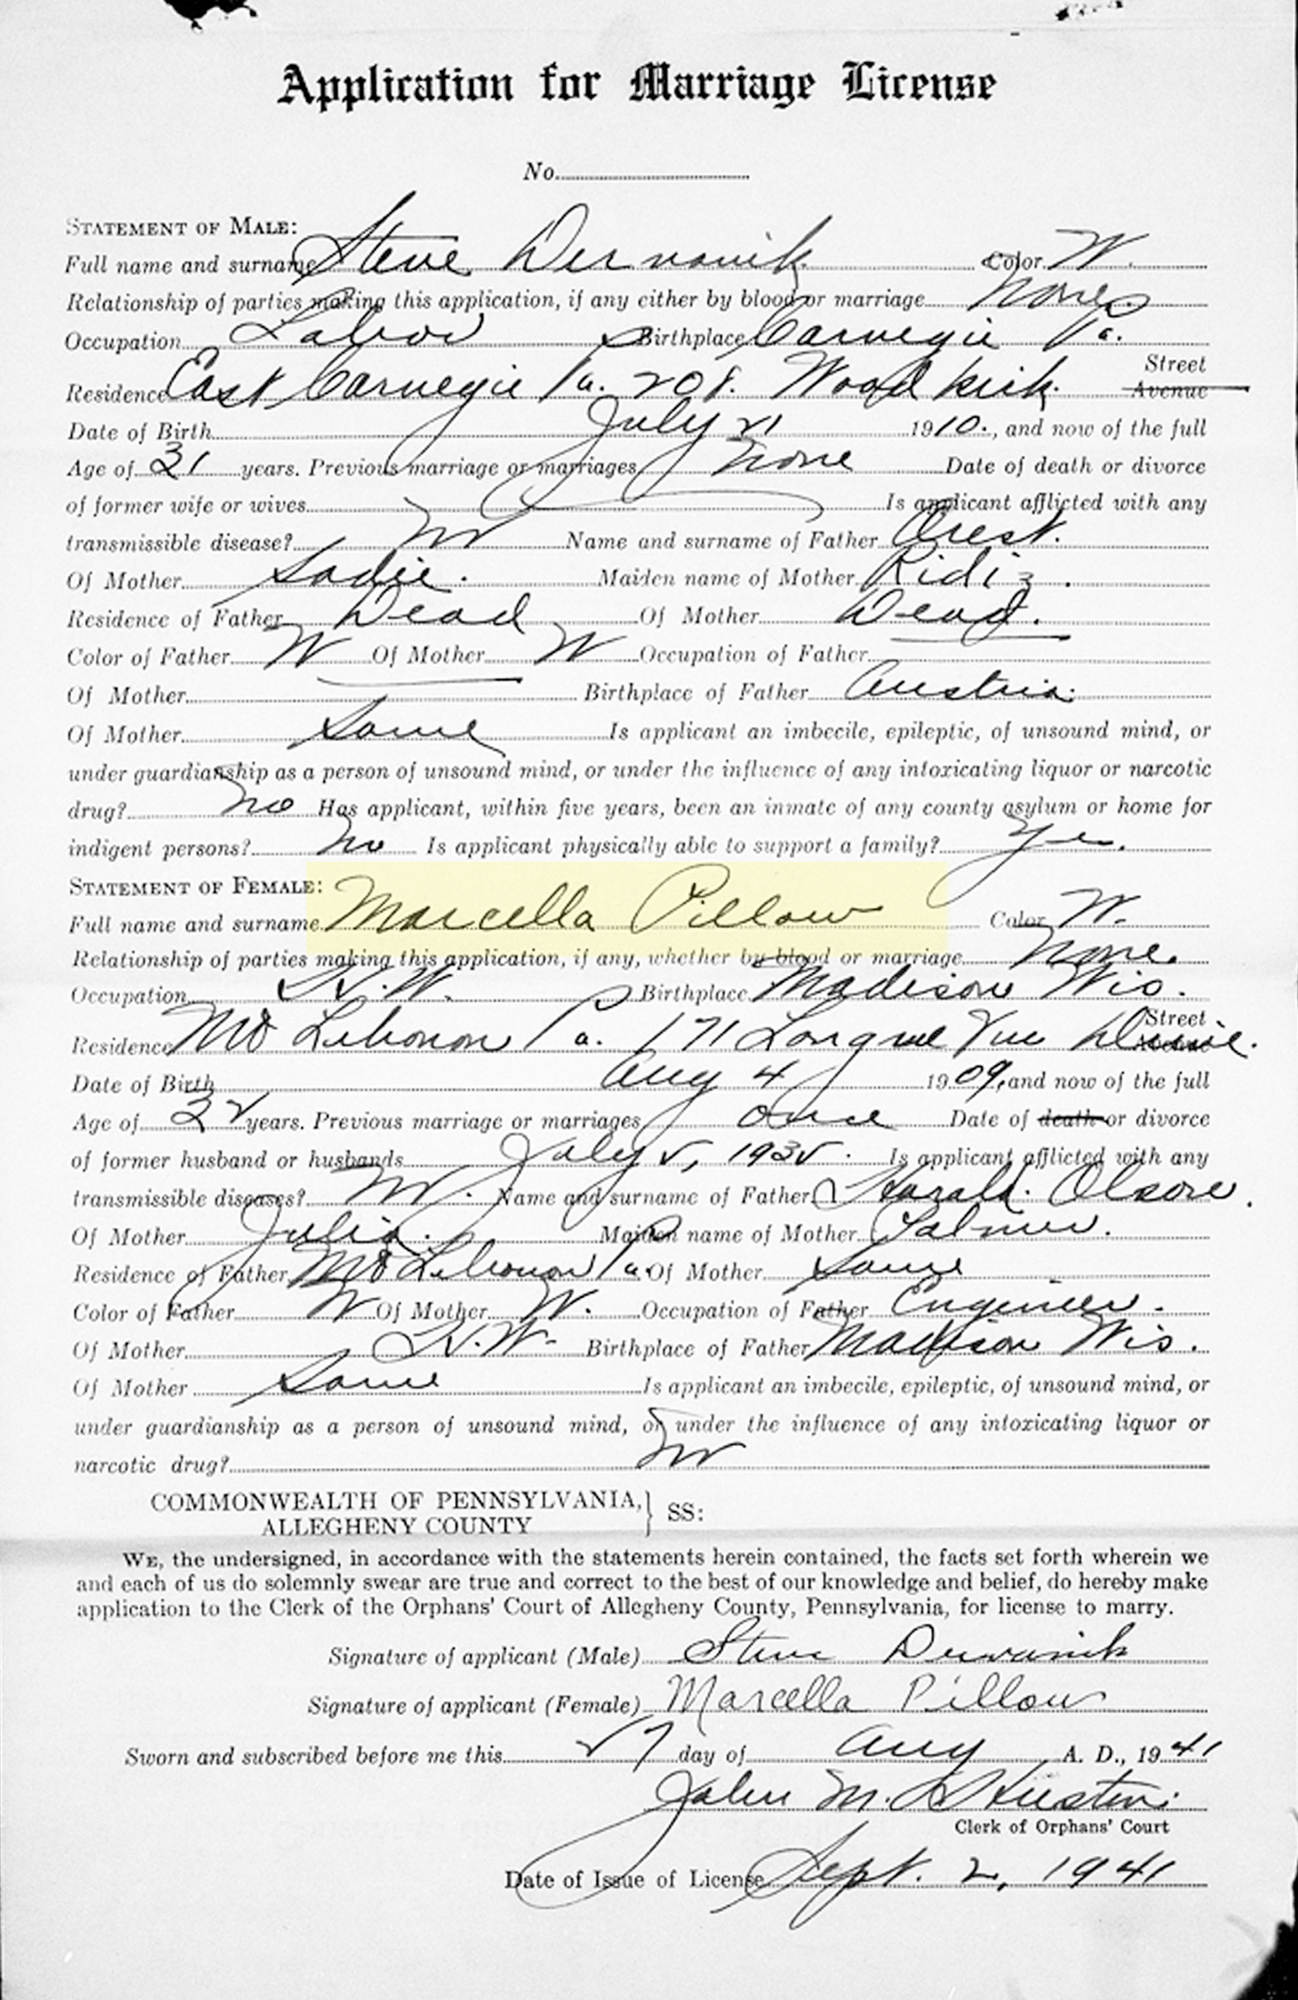 Application for Marriage License
No.
STATEMENT OF MALE:
Full name and surname Steve Dervanik Color W.
Relationship of parties making this application, if any either by blood or marriage None
Occupation Labor Birthplace Carnegie Pa.
Street
Residence East Carnegie Pa. 208. Woodkirk Avenue
Date of Birth July 21 1910., and now of the full
Age of 31 years. Previous marriage or marriages none Date of death or divorce
of former wife or wives Is applicant afflicted with any
transmissible disease? no Name and surname of Father Orest.
Of Mother Sadie. Maiden name of Mother
Residence of Father Dead Of Mother Dead.
Color of Father W Of Mother W Occupation of Father
Of Mother Birthplace of Father Austria.
Of Mother Same Is applicant an imbecile, epileptic, of unsound mind, or
under guardianship as a person of unsound mind, or under the influence of any intoxicating liquor or narcotic
drug? no Has applicant, within five years, been an inmate of any county asylum or home for
indigent persons? no Is applicant physically able to support a family? Yes.
STATEMENT OF FEMALE:
Full name and surname Marcella Pillow Color W.
Relationship of parties making this application, if any, whether by blood or marriage None.
Occupation H.W. Birthplace Madison Wis.
Street
Residence Mt Lebonon Pa. 171 Longue Vue Drive.
Date of Birth Aug 4 1909, and now of the full
Age of 32 years. Previous marriage or marriages once Date of death or divorce
of former husband or husbands July 2, 1932. Is applicant afflicted with any
transmissible diseases? no. Name and surname of Father Harald. Olsone.
Of Mother Julia. Maiden name of Mother Palmer.
Residence of Father Mt Lebonon Pa. Of Mother Same
Color of Father W Of Mother W. Occupation of Father Engineer.
Of Mother H.W. Birthplace of Father Madison Wis.
Of Mother Same Is applicant an imbecile, epileptic, of unsound mind, or
under guardianship as a person of unsound mind, or under the influence of any intoxicating liquor or
narcotic drug? no
COMMONWEALTH OF PENNSYLVANIA, } SS:
ALLEGHENY COUNTY
WE, the undersigned, in accordance with the statements herein contained, the facts set forth wherein we
and each of us do solemnly swear are true and correct to the best of our knowledge and belief, do hereby make
application to the Clerk of the Orphans' Court of Allegheny County, Pennsylvania, for license to marry.
Signature of applicant (Male) Steve Derwanik
Signature of applicant (Female) Marcella Pillow
Sworn and subscribed before me this 27 day of Aug A. D., 1941
John M.
Clerk of Orphans' Court
Date of Issue of License Sept. 2, 1941